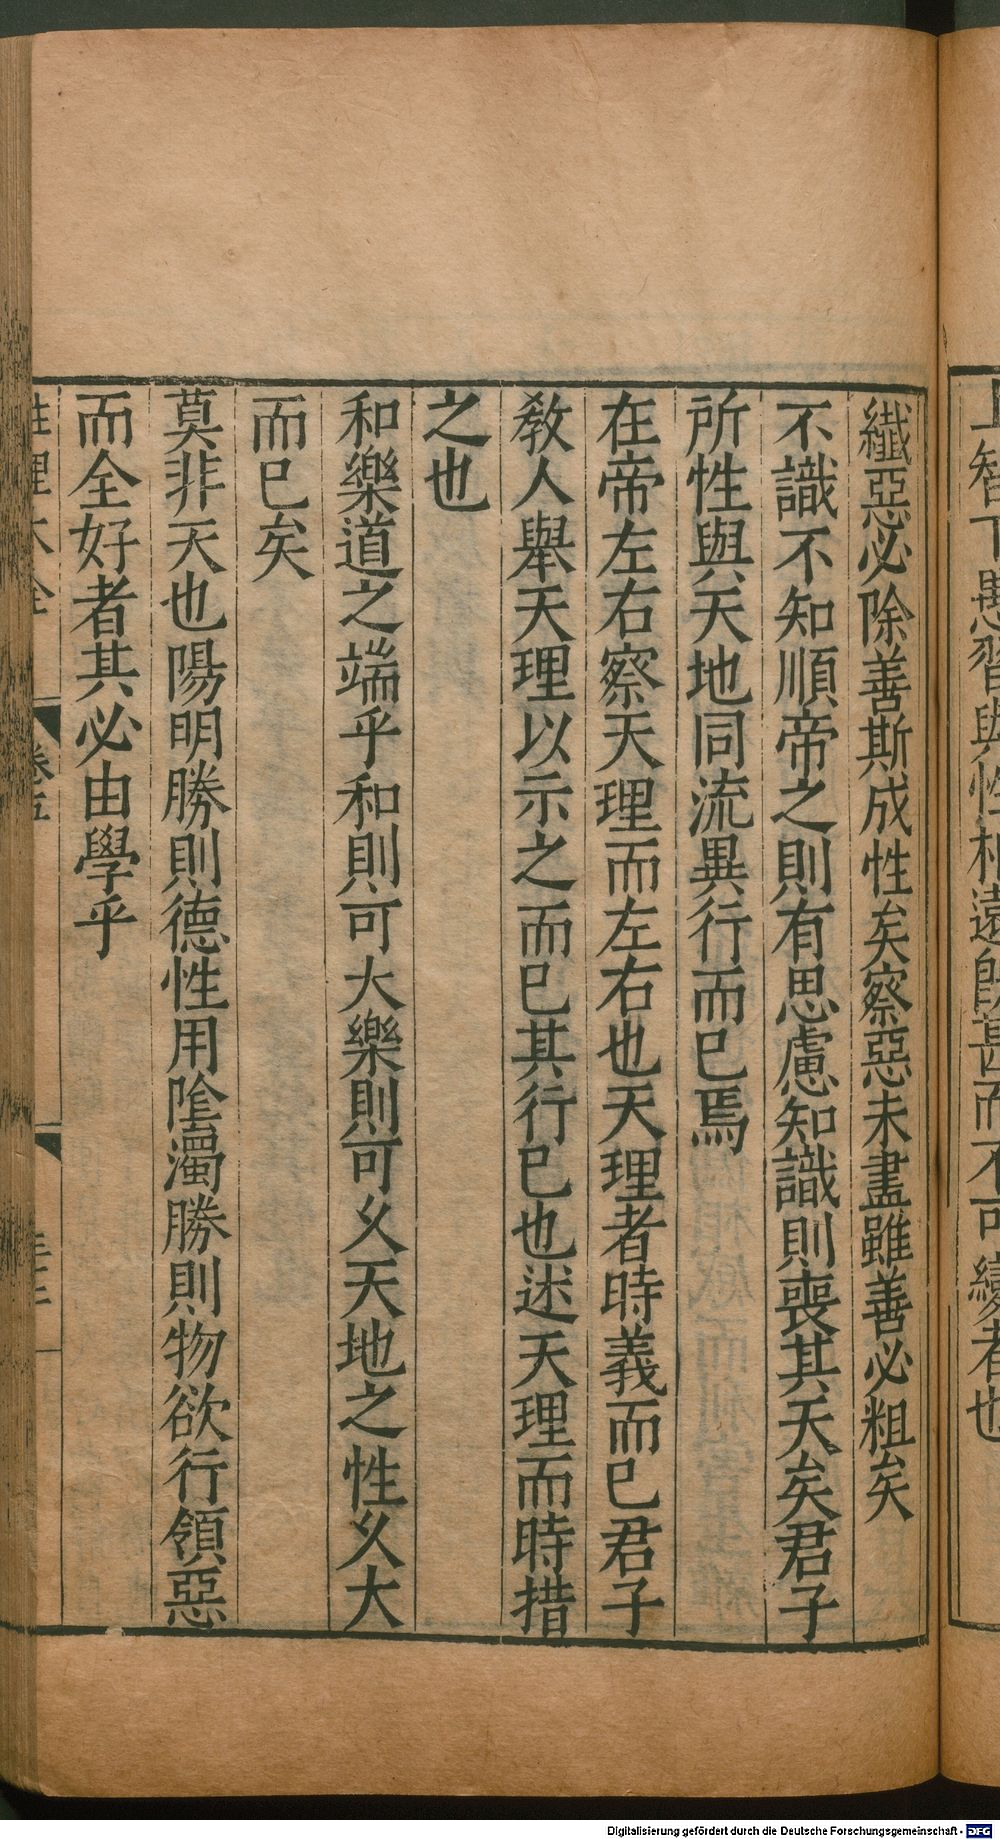 上智下愚習與性相遠既甚而不可變者也
纎惡必除善斯成性矣察惡未盡雖善必粗矣
不識不知順帝之則有思慮知識則喪其天矣君子
所性與天地同流異行而已焉
在帝左右察天理而左右也天理者時義而已君子
敎人舉天理以示之而已其行已也述天理而時措
之也
和樂道之端乎和則可大樂則可久天地之性久大
而已矣
莫非天也陽明勝則德性用陰濁勝則物欲行領惡
而全好者其必由學乎
性理大全
卷五
Digitalisierung gefördert durch die Deutsche Forschungsgemeinschaft - DFG